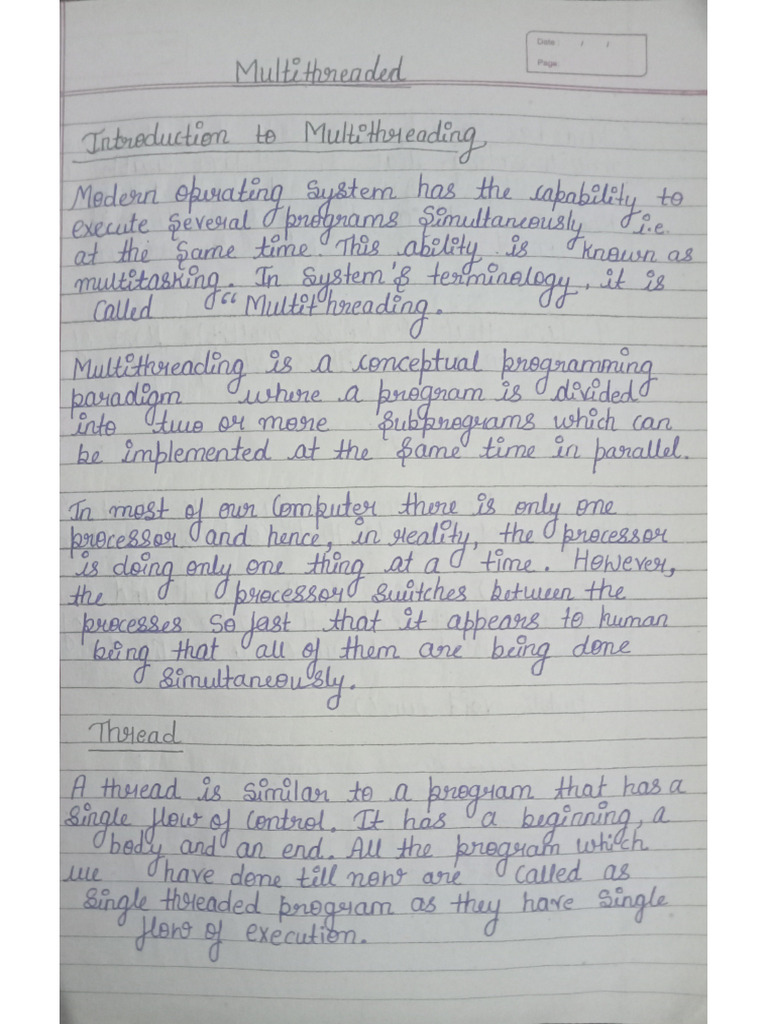 Date: / /
Page
Multithreaded
Introduction to Multithreading
Modern operating system has the capability to
execute several programs simultaneously i.e.
at the same time. This ability is known as
multitasking. In system's terminology, it is
called “Multithreading.
Multithreading is a conceptual programming
paradigm where a program is divided
into two or more subprograms which can
be implemented at the same time in parallel.
In most of our computer there is only one
processor and hence, in reality, the processor
is doing only one thing at a time. However,
the processor switches between the
processes so fast that it appears to human
being that all of them are being done
simultaneously.
Thread
A thread is similar to a program that has a
single flow of control. It has a beginning, a
body and an end. All the program which
we have done till now are called as
single threaded program as they have single
flow of execution.